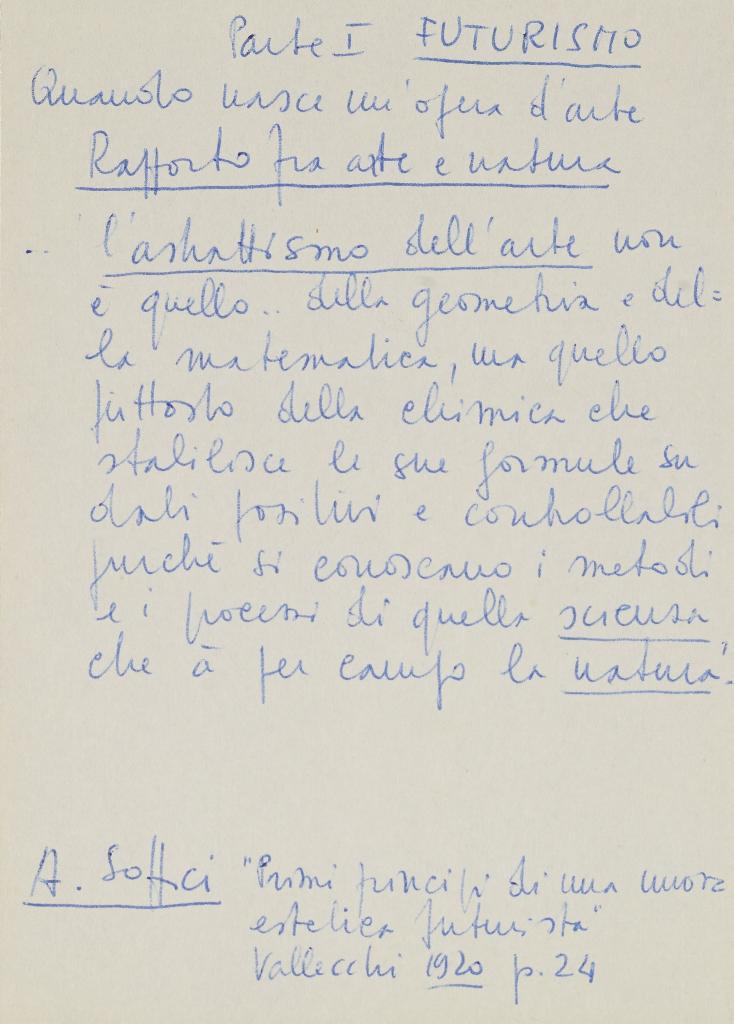 Parte I FUTURISMO
Quando nasce un'opera d'arte
Rapporto fra arte e natura
.. l'astrattismo dell'arte non
è quello.. della geometria e del=
la matematica, ma quello
piuttosto della chimica che
stabilisce le sue formule su
dati positivi e controllabili
purché si conoscano i metodi
e i processi di quella scienza
che à per campo la natura".
A. Soffici "Primi principi di una nuova
estetica futurista"
Vallecchi 1920 p. 24